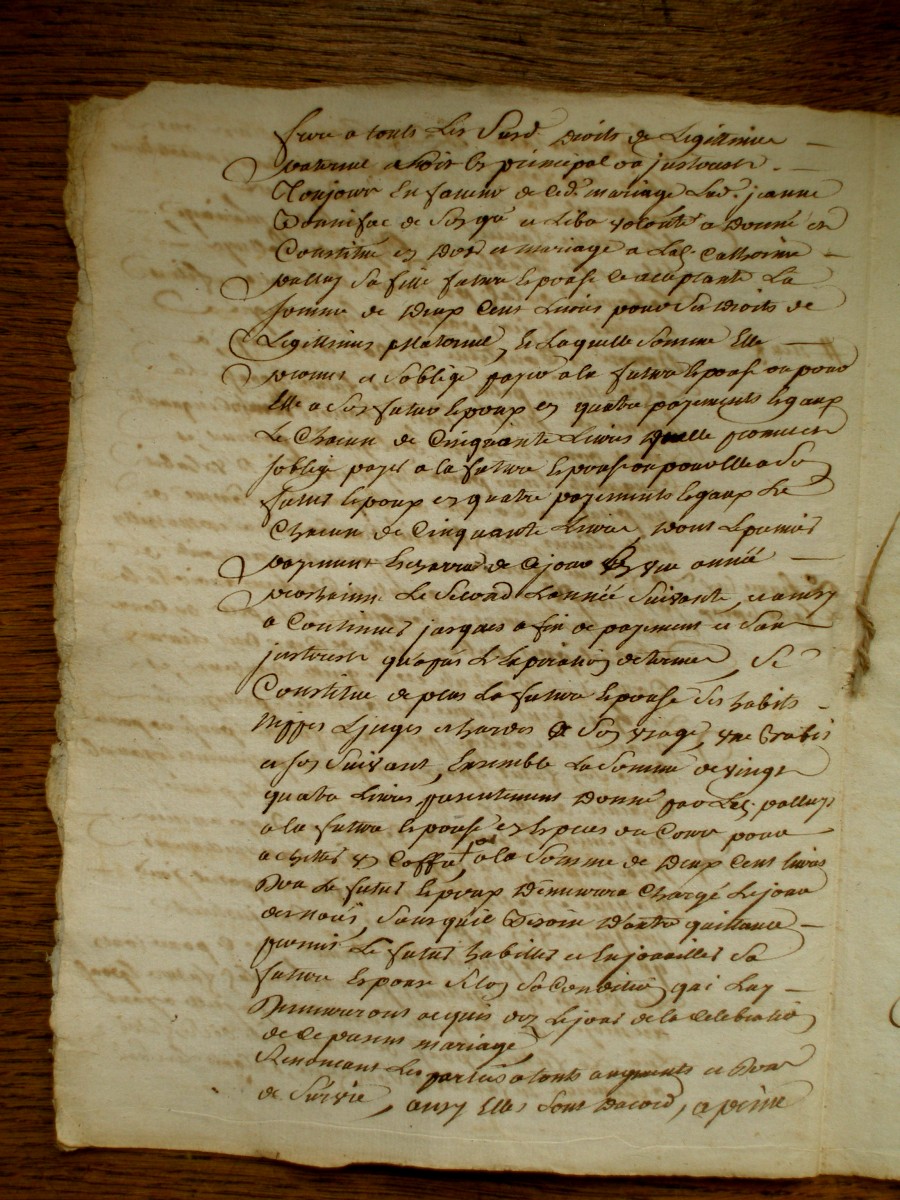 faire a touts les susd. droits de Legittime
paternel a soit le principal ou justoute
Toujour en faveur de ced. mariage Lad. jeanne
Bonnifac de son gré et libe volonté a donné et
Constitué en Dord et mariage a Lad. Catherine
pallug sa fille future Epouse Ce aceptante La
somme de Deux Cent Livres pour ses Droits de
Legittimes Matternel, Laquelle Somme Elle
promet et soblige payer a la future Epouse ou pour
Elle a son futur Epoux en quatre payements Egaux
Le Chacun de Cinquante Livres quelle promet et
soblige payer a la future Epouse ou pour Elle a Son
futur Epoux en quatre payements Egaux Le
Chacun de Cinquante Livres, Dont Le premier
payement Echerra de Ce jour En une année
prochainne Le Second Lannée Suivante, et ainsy
a Continuer jusques a fin de payement et San
jnstrest qu'apres L'Expiration de termes, Se
Constitue de plus La future Epouse Ses habits
Nippes Linges et hardes de Son usage, une Brebis
et son Suivant, Ensemble La Somme de vingt
quatre Livres presentement Donné par Led. pallug
a la future Epouse en Especes du Cour pour
achetter un Coffre, a la Somme de Deux Cent Livres
Don Le futur Epoux Demeurera Chargé Le jour
des noces, Sans quil Besoin D'autre quittance
promis Le futur habiller et Enjouailler Sa
future Epouse Selon Sa Condition qui Luy
Demeureront acquis des Le jour de la Celebration
de Ce present mariage,
Renonceant Les parties a touts augments et Dons
de Survie, ainsy Elles Sont Dacord, a peine